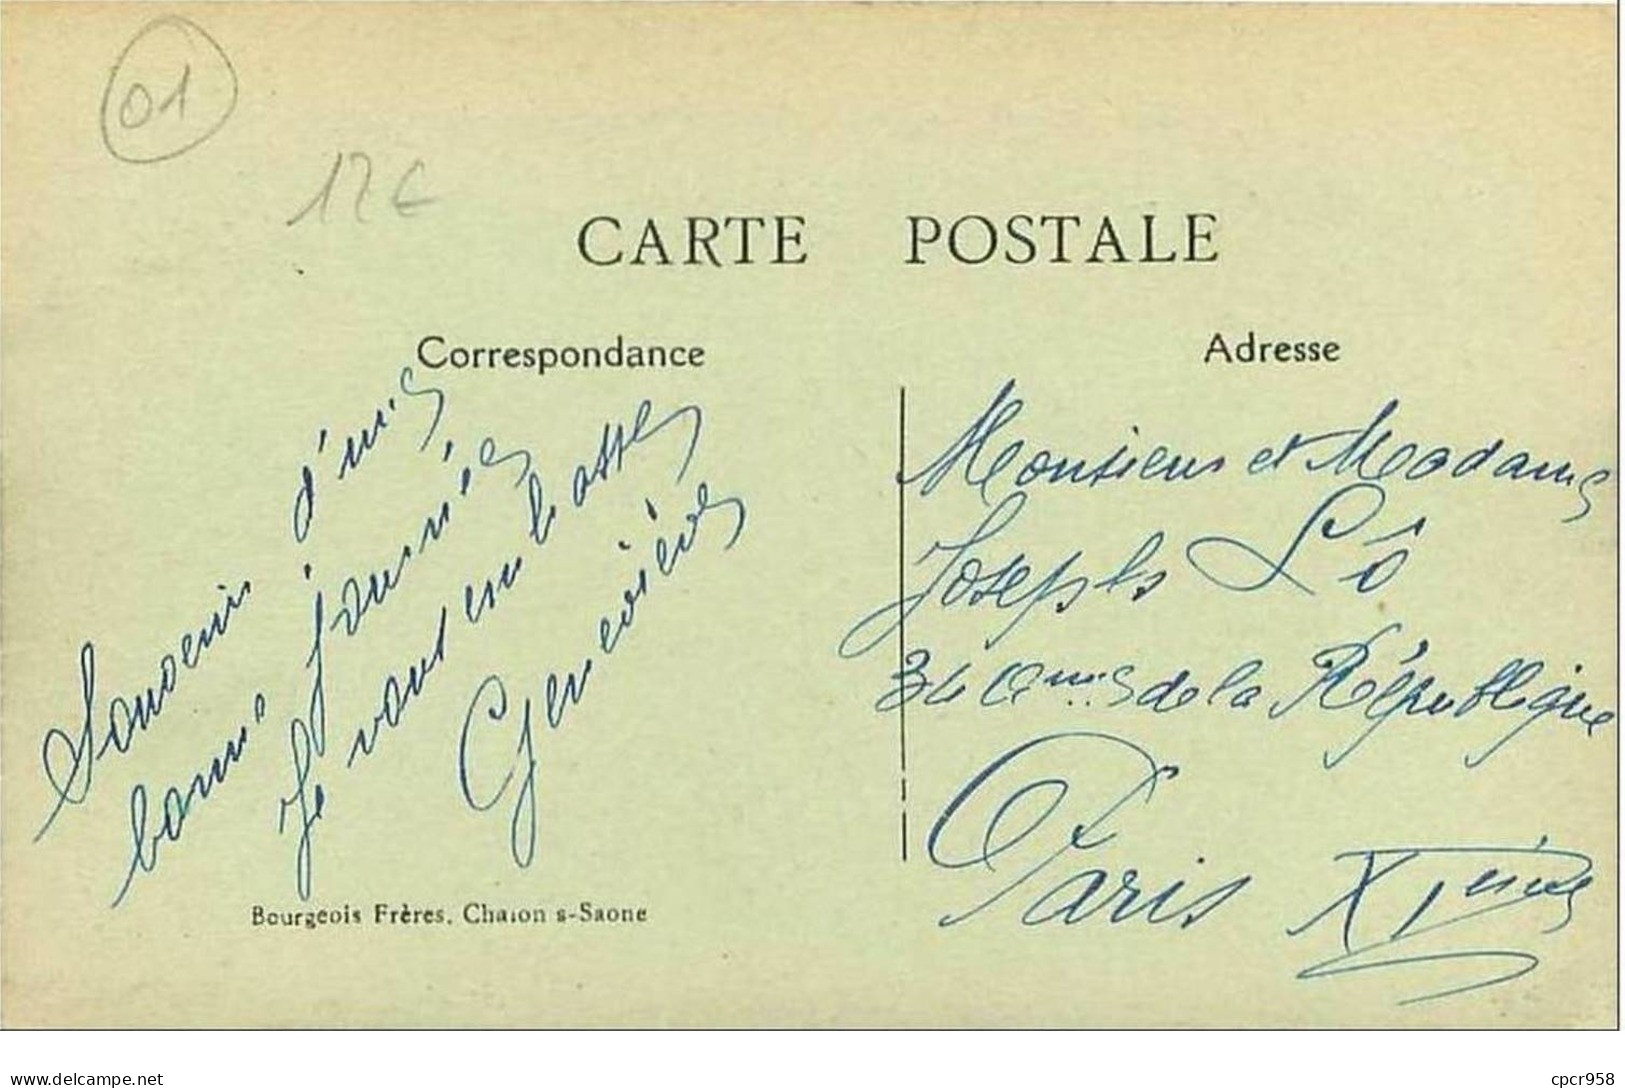 01
12 €
CARTE POSTALE
Correspondance
Adresse
Souvenir d'une
bonne journée
Je vous embrasse
Geneviève
Monsieur et Madame
Joseph Lô
34 de la République
Paris XIème
Bourgeois Frères. Chalon s-Saone
www.delcampe.net
cpcr958